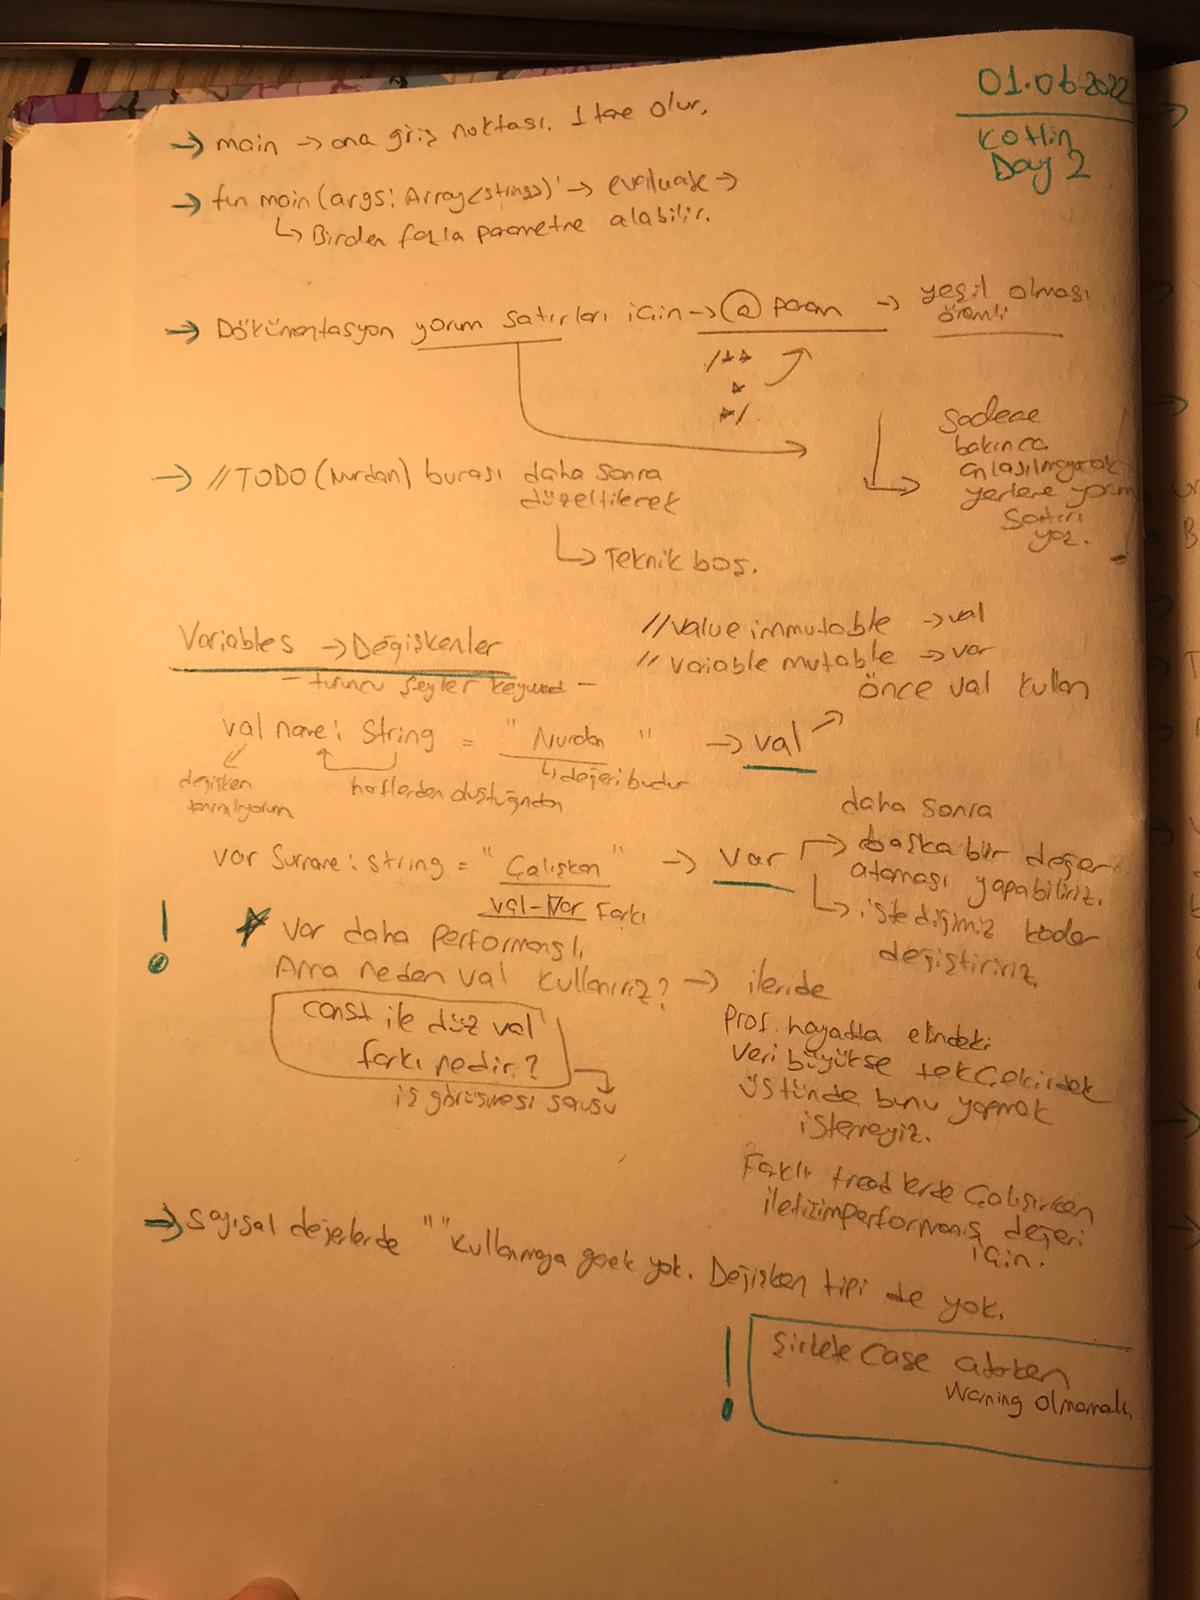 01.06.2022
Kotlin
Day 2
→ main → ana giriş noktası. 1 tane olur.
→ fun main(args: Array<strings>) → evaluate →
↳ Birden fazla parametre alabilir.
→ Dökümentasyon yorum satırları için → @ param → yeşil olması
önemli
/**
*
*/
Sadece
bakınca
anlaşılmayacak
yerlere yorum
satırı
yaz.
→ //TODO(Nurdan) burası daha sonra
düzeltilecek
↳ Teknik boş.
Variables → Değişkenler
- turuncu şeyler keyword -
//value immutable → val
// vaiable mutable → var
önce val kullan
val name: String = "Nurdan" → val
değişken
tanımlıyorum
harflerden oluştuğundan
↳ değeri budur
daha sonra
var Surname: string = "Çalışkan" → var → başka bir değer
ataması yapabiliriz.
↳ istediğimiz kadar
değiştiririz.
val-var Farkı
! ★ var daha performanslı,
Ama neden val kullanırız? → ileride
Prof. hayatta elindeki
veri büyükse tek çekirdek
üstünde bunu yapmak
istemeyiz.
Farklı treadlerde çalışırken
iletizimperformanış değeri
için.
const ile düz val
farkı nedir?
iş görüşmesi sorusu
→ Sayısal değerlerde " " kullanmaya gerek yok. Değişken tipi de yok.
! Şirkete case atarken
Warning olmamalı.